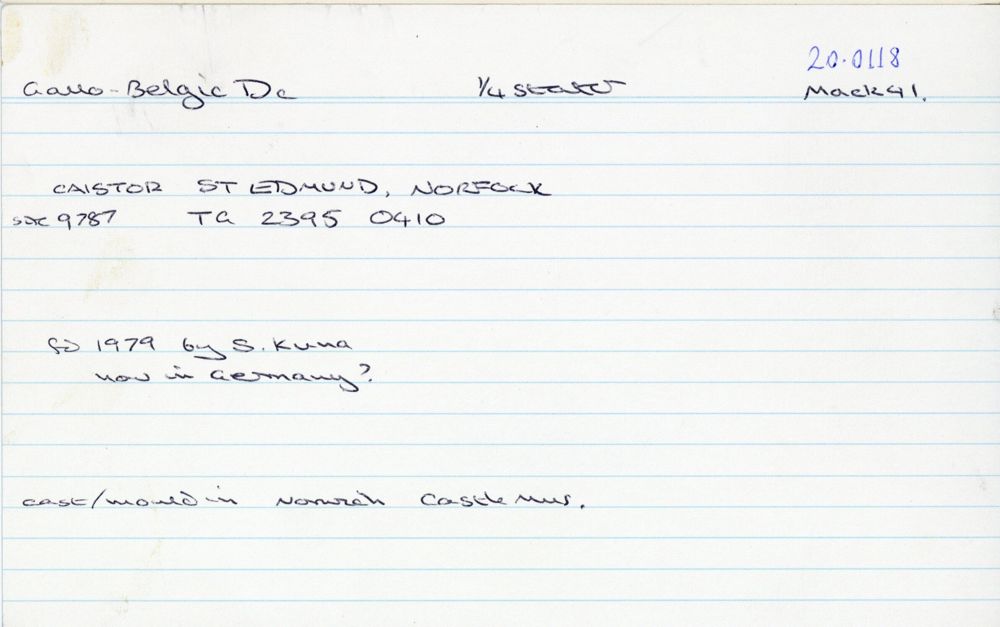 20.0118
Gallo-Belgic Dc 1/4 STATER Mack 41.
CAISTOR ST EDMUND, NORFOLK
9787 TG 2395 0410
fd 1979 by S. Kuna
now in Germany?
cast/mould in Norwich Castle Mus.